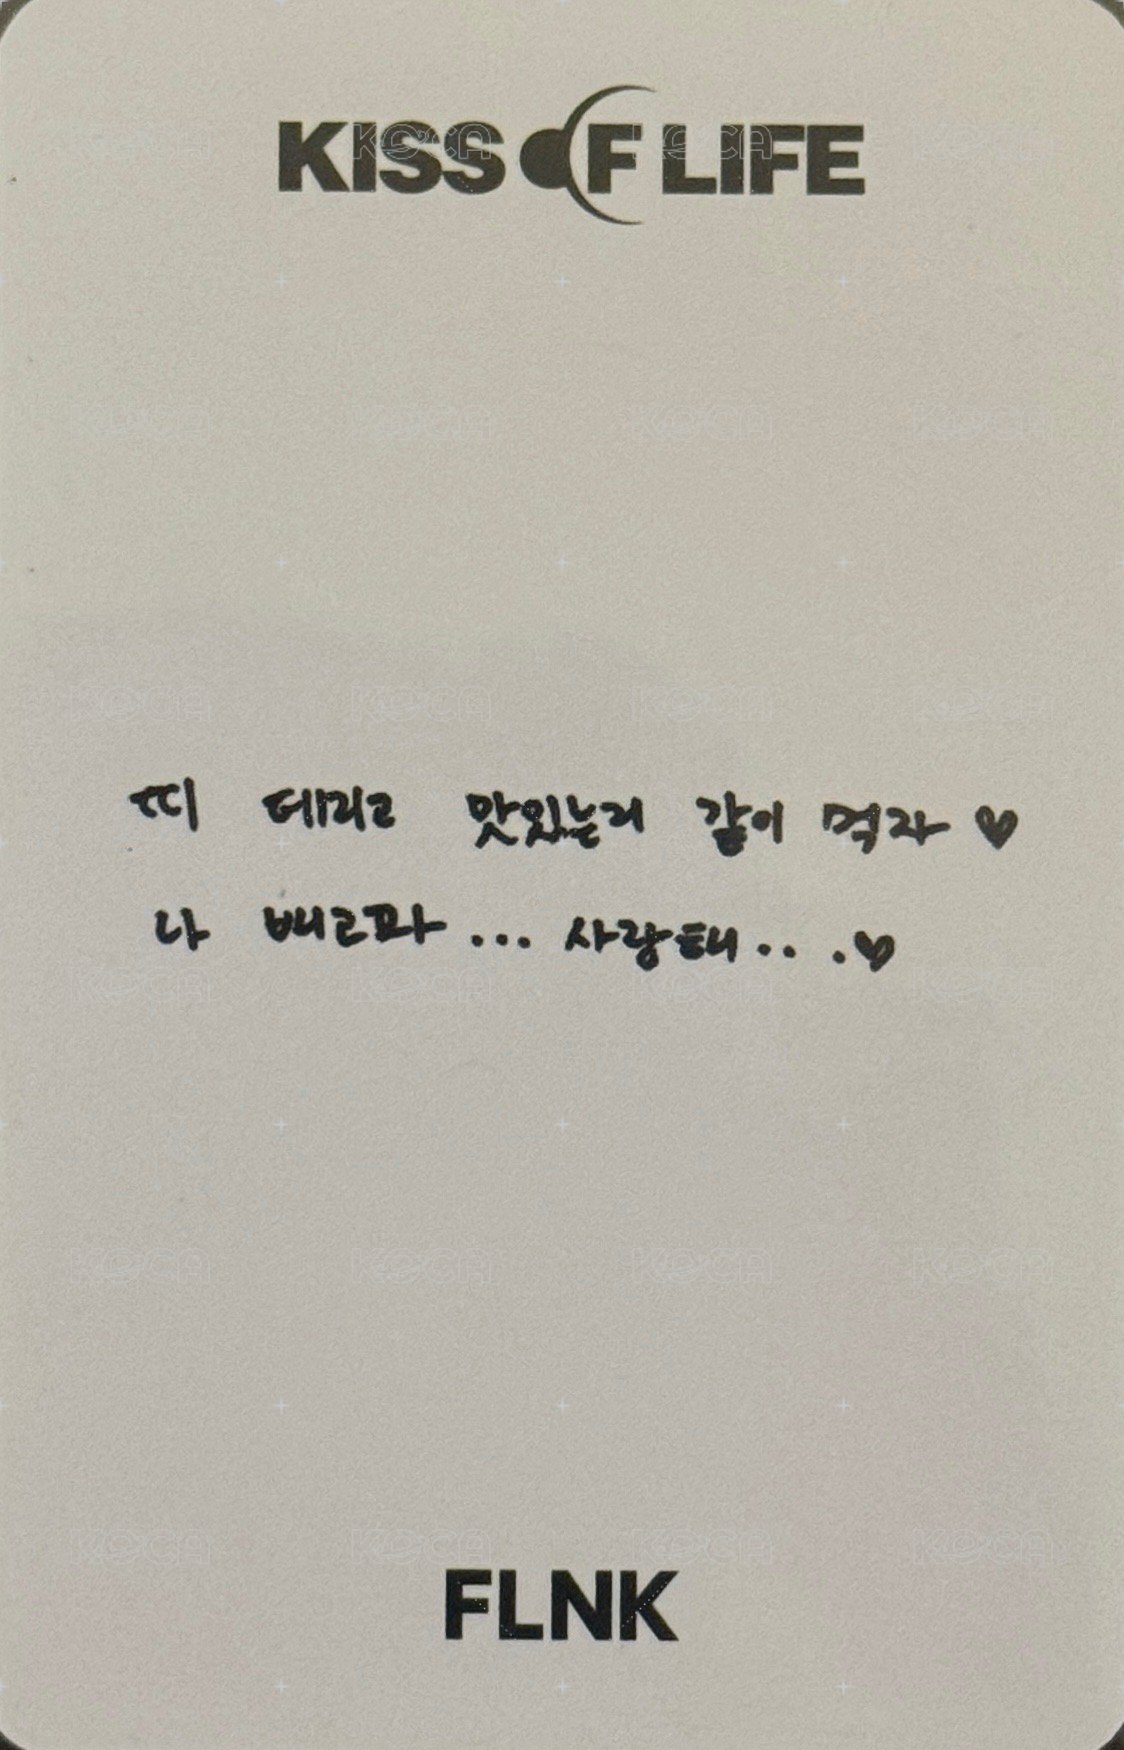 KISS OF LIFE
띠 데리고 맛있는거 같이 먹자 ♥
나 배고파... 사랑해...♥
FLNK